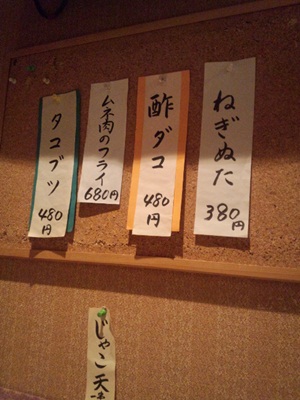 ねぎぬた
380円
酢ダコ
480円
ムネ肉のフライ
680円
タコブツ
480円
じゃこ天